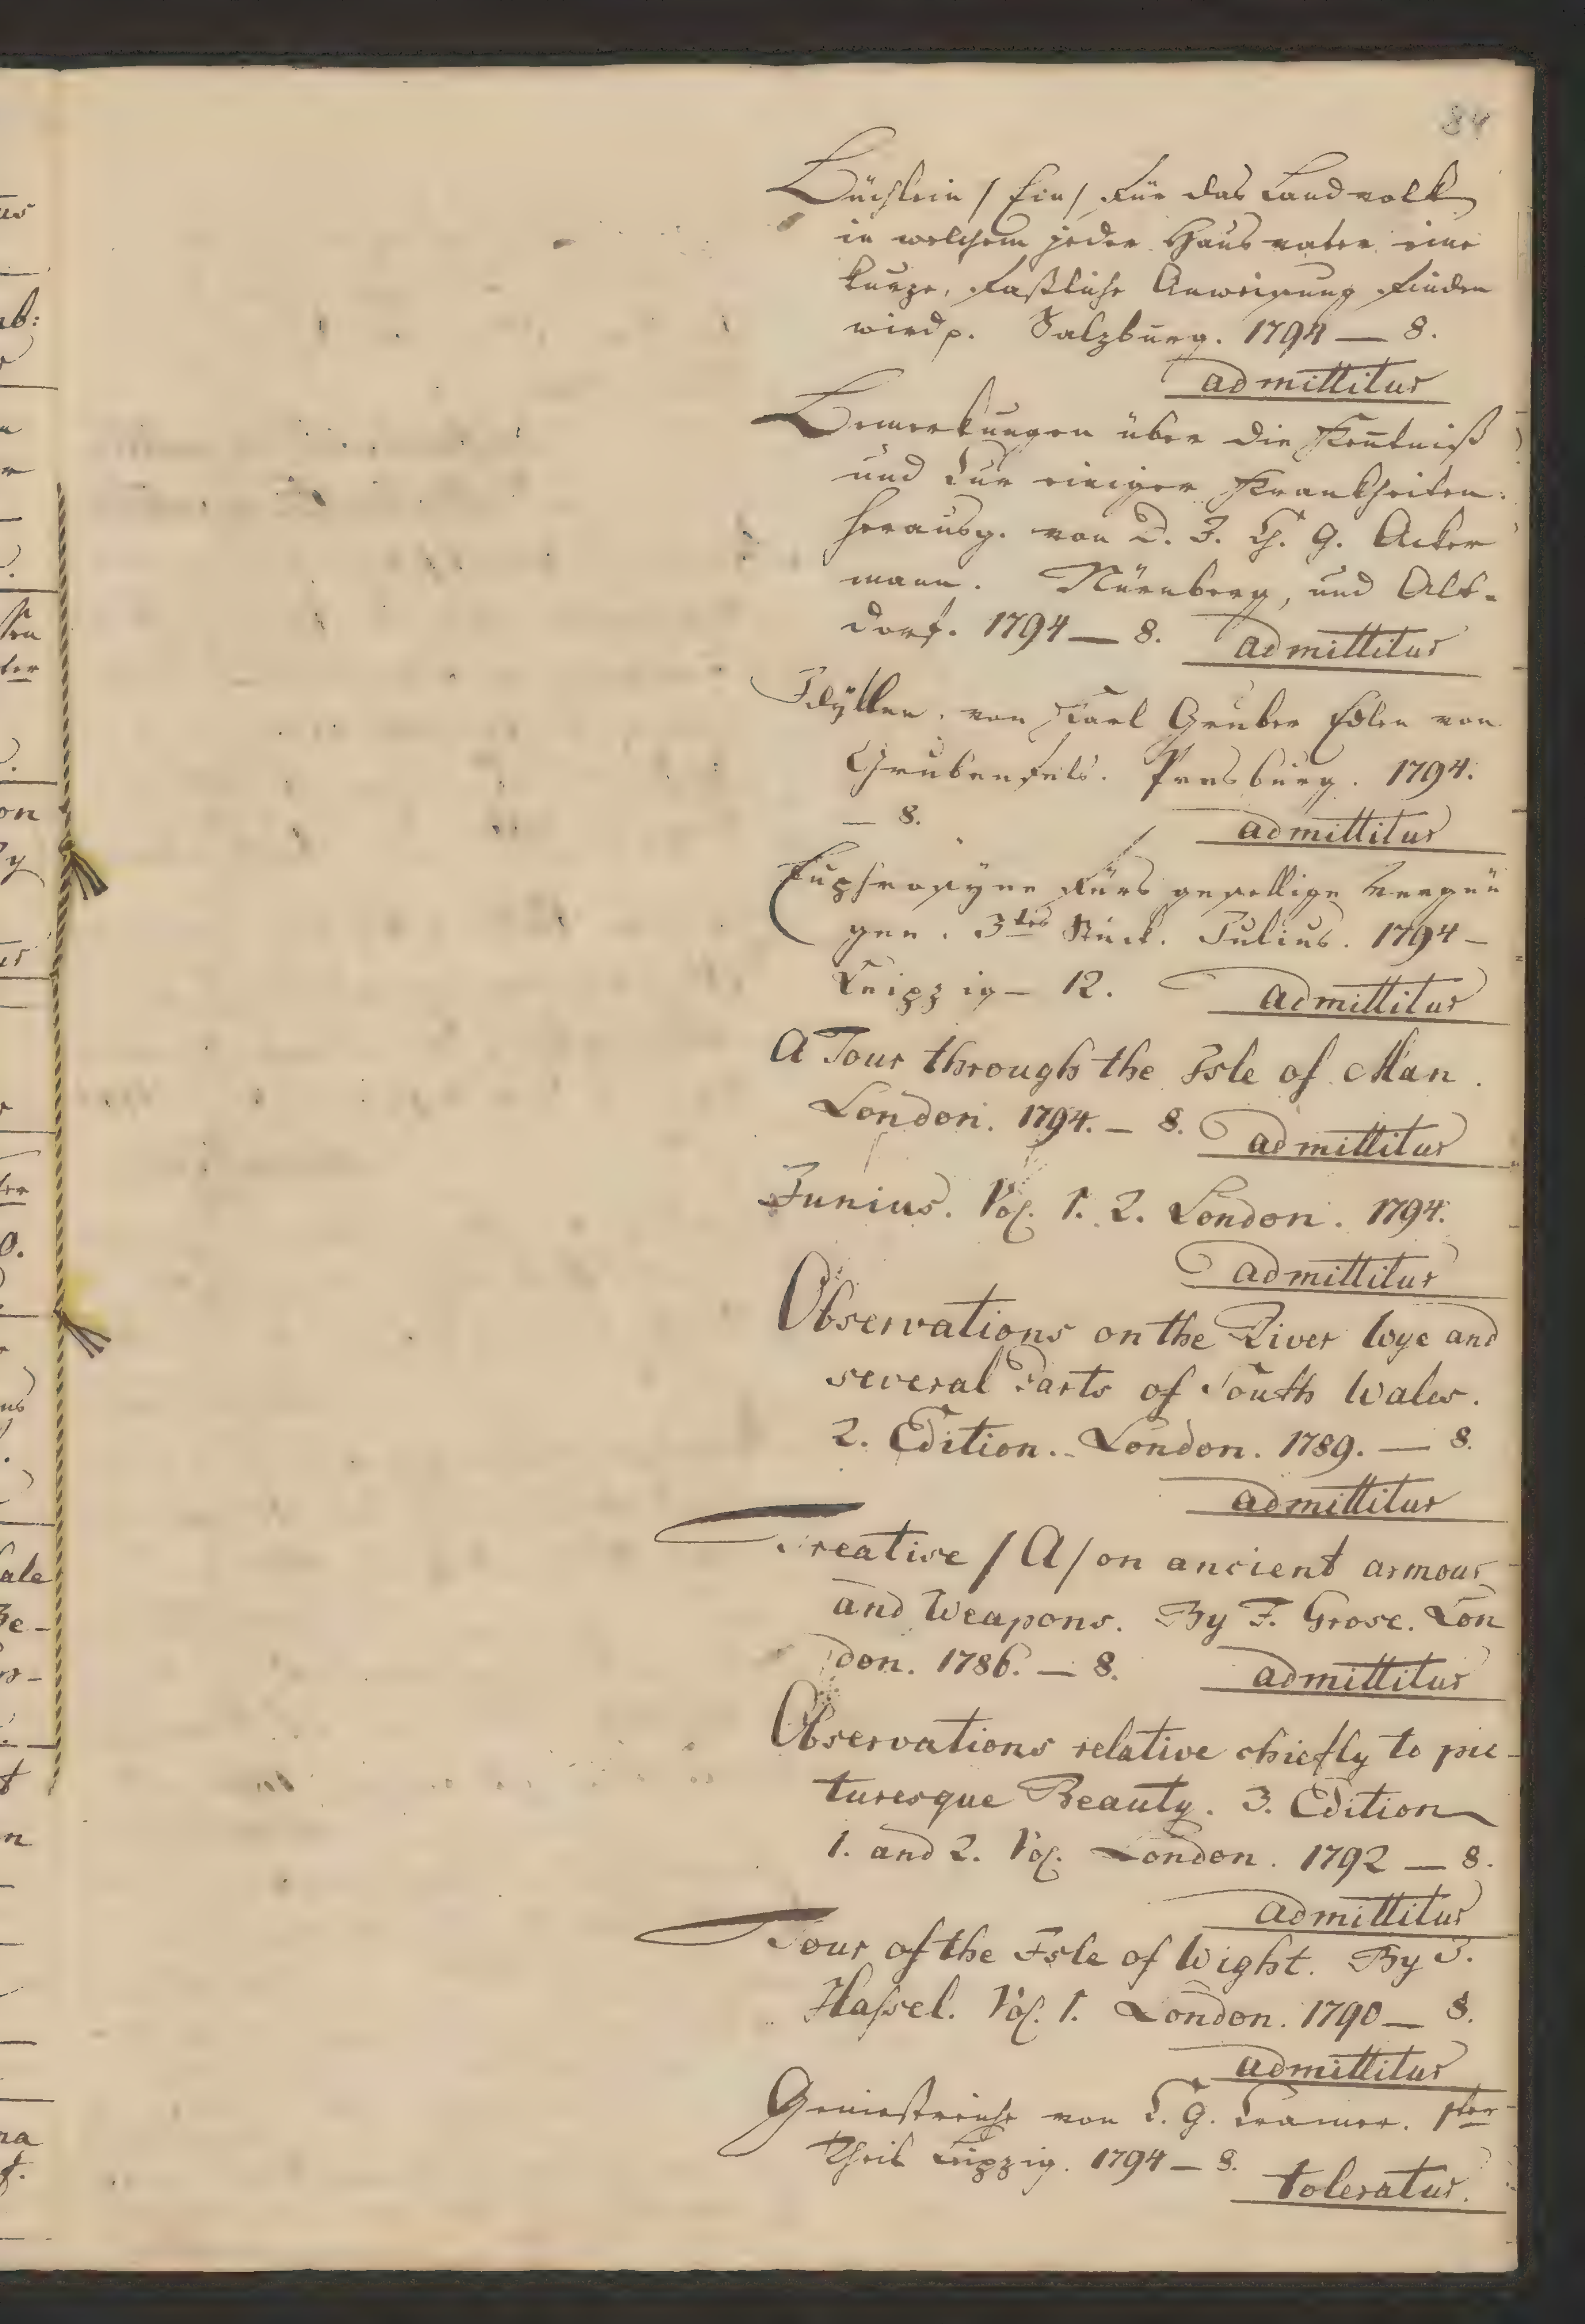 84
Büchlein / Ein / für das Landvolk
in welchem jeder Hausvater eine
kurze, faßliche Anweisung finden
wird p. Salzburg. 1794 — 8.
admittitur
Bemerkungen über die Keñtniß
und Cur einiger Krankheiten.
herausg. von D. J. Ch. G. Acker
mann. Nürnberg, und Alt-
dorf. 1794 — 8. admittitur
Idyllen. von Karl Gruber Edlen von
Grubenfels. Presburg. 1794.
— 8. admittitur
Euphrosyne fürs gesellige Vergnü
gen. 3tes Stück. Julius. 1794 —
Leipzig — 12. admittitur
A Tour through the Isle of Man.
London. 1794. — 8. admittitur
Junius. Vol. 1. 2. London. 1794.
admittitur
Observations on the River Wye and
several Parts of South Wales.
2. Edition. London. 1789. — 8.
admittitur
Treatise / A / on ancient armour
and Weapons. By F. Grose. Lon
don. 1786. — 8. admittitur
Observations relative chiefly to pic-
turesque Beauty. 3. Edition
1. and 2. Vol. London. 1792 — 8.
admittitur
Tour of the Isle of Wight. By J.
Hassel. Vol. 1. London. 1790 — 8.
admittitur
Geniestreiche von C. G. Cramer. 1ter
Theil Leipzig. 1794 — 8. toleratur.